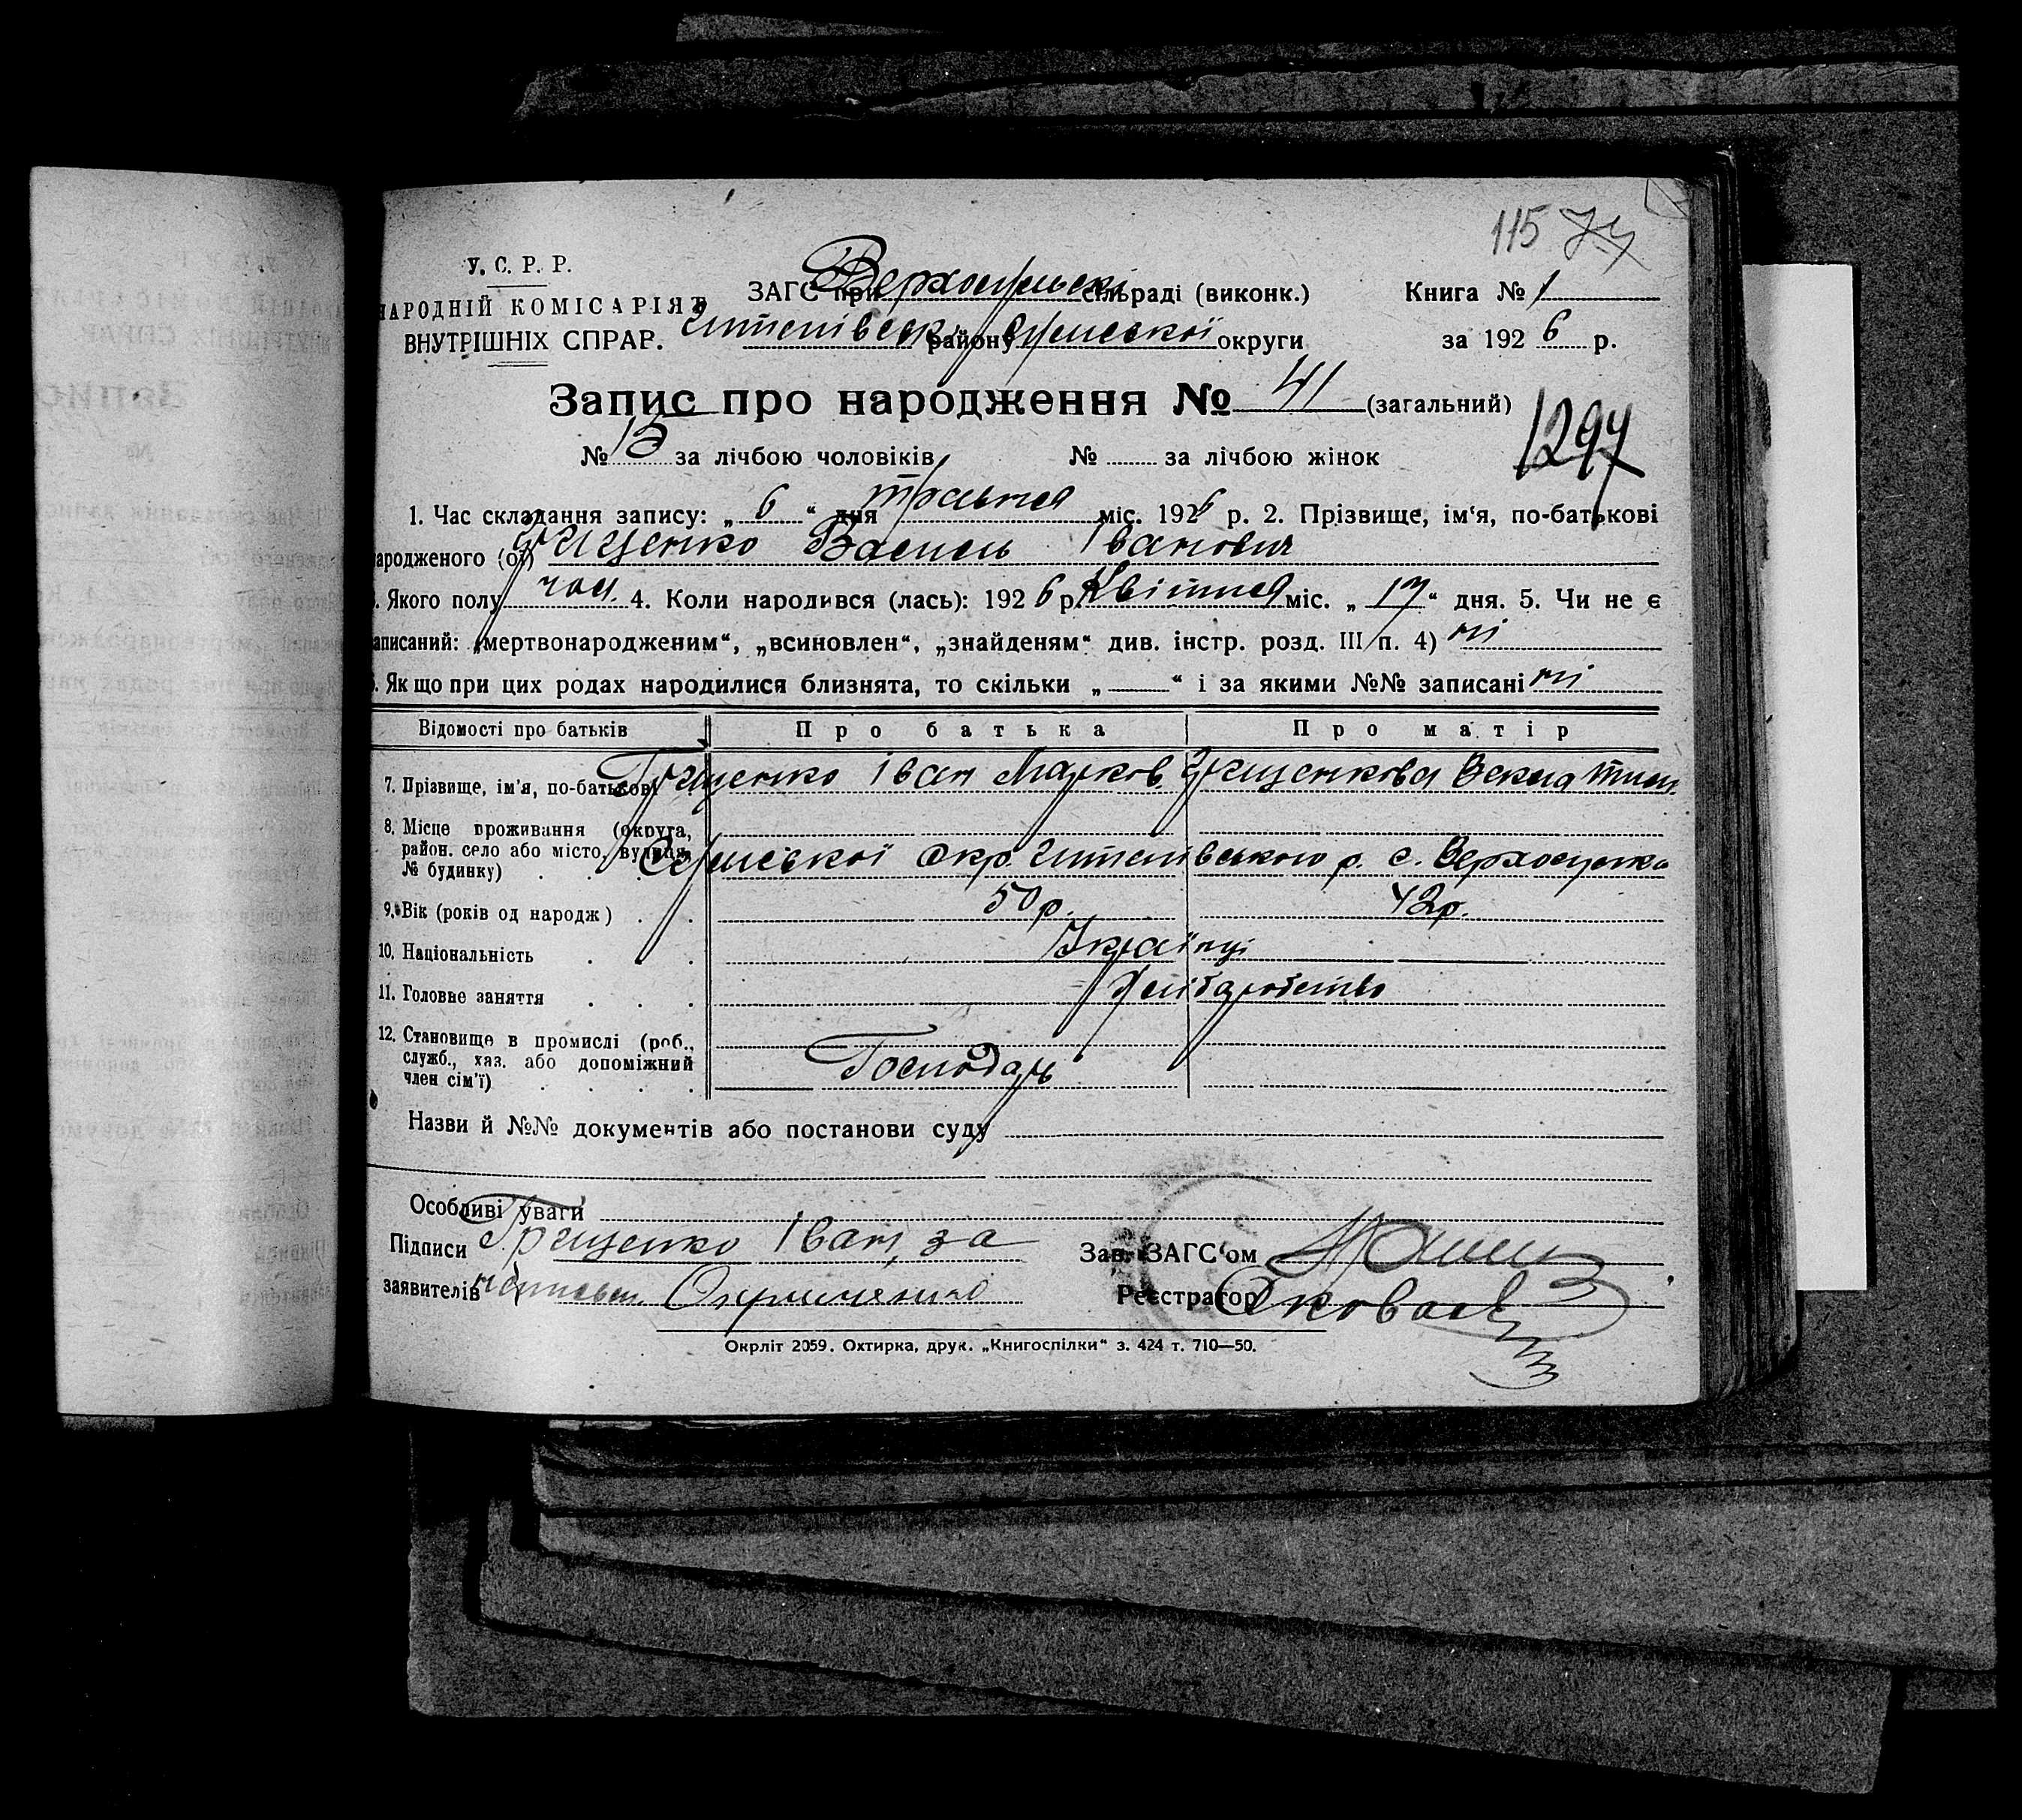 115 74
У. С. Р. Р.
НАРОДНІЙ КОМІСАРІЯТ
ВНУТРІШНІХ СПРАР.
ЗАГС при Верхосульскі сільраді (виконк.)
Книга № 1
Штепівськ. району Сумської округи
за 1926 р.
Запис про народження № 41 (загальний)
№ 15 за лічбою чоловіків № за лічбою жінок
1294
1. Час складання запису: „ 6 “ дня травня міс. 1926 р. 2. Прізвище, ім‘я, по-батькові
ародженого (ої) Грищенко Василь Іванович
. Якого полу чол. 4. Коли народився (лась): 1926 р. Квітня міс. „ 17 “ дня. 5. Чи не є
аписаний: „мертвонародженим“, „всиновлен“, „знайденям“ див. інстр. розд. III п. 4) ні
. Як що при цих родах народилися близнята, то скільки „ — “ і за якими №№ записані ні
Відомості про батьків Про батька Про матір
7. Прізвище, ім’я, по-батькові Грищенко Іван Марков. Грищенкова Векла Тим.
8. Місце проживання (округа,
район. село або місто, вулиця,
№ будинку) Сумської Окр. Штепівського р. с. Верхосулка
9. Вік (років од народж) 50 р. 42 р.
10. Національність Українці
11. Головне заняття Хліборобство
12. Становище в промислі (роб.,
служб., хаз. або допоміжний
член сім’ї) Господарь
Назви й №№ документів або постанови суду
Особливі уваги
Підписи Грищенко Іван, за
заявителів
Зав. ЗАГС‘ом
Реєстратор
Окрліт 2059. Охтирка, друк. „Книгоспілки“ з. 424 т. 710—50.